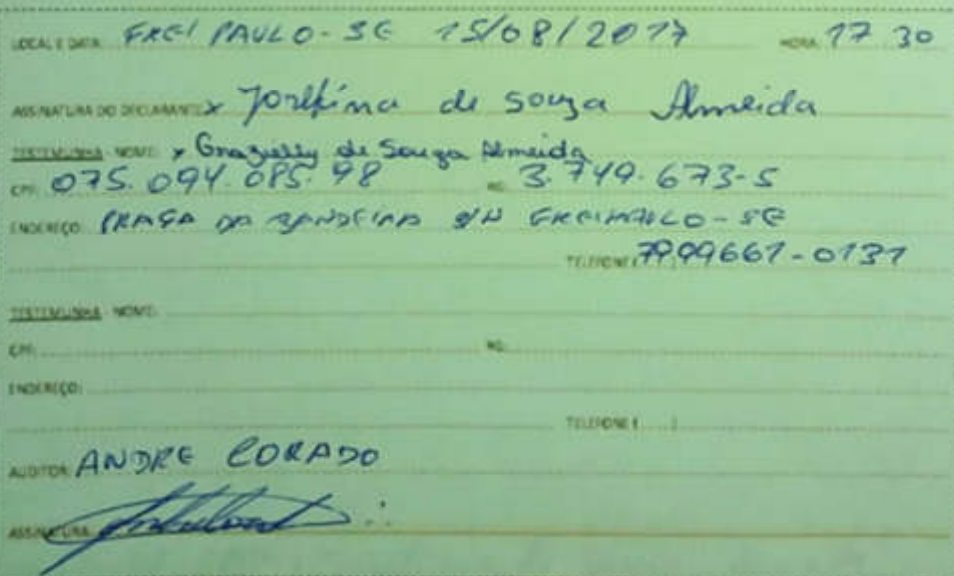 LOCAL E DATA: FREI PAULO-SE 15/08/2017 HORA: 17 30
ASSINATURA DO DECLARANTE: x Josefina de Souza Almeida
TESTEMUNHA - NOME: x Grazielly de Souza Almeida
CPF: 075.094.085.98 RG: 3.749.673-5
ENDEREÇO: PRAÇA DA BANDEIRA S/N FREI PAULO-SE
TELEFONE ( ) 7999661-0131
TESTEMUNHA - NOME:
CPF: RG:
ENDEREÇO:
TELEFONE ( )
AUDITOR: ANDRE CORADO
ASSINATURA: